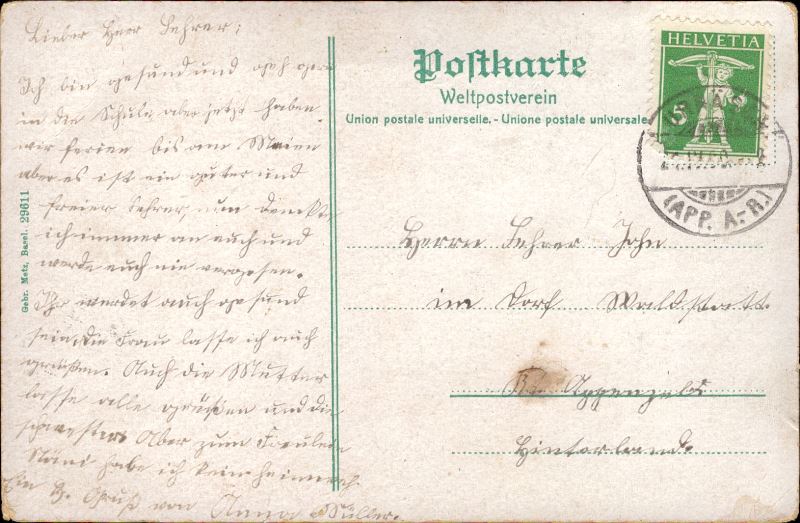 Lieber Herr Lehrer;
Ich bin gesund und geh gern
in die Schule aber jetzt haben
wir ferien bis am Maien
aber es ist ein guter und
freier Lehrer, nun denckte
ich immer an euch und
werde euch nie vergesen.
Ihr werdet auch gesund
sein, die Frau lasse ich auch
grüßen. Auch die Mutter
lasse alle grüßen und die
schwestern Aber zum Fräulein
Näni habe ich kein heimweh
Ein Gruß von Anna Müller.
Gebr. Metz, Basel. 29611
Postkarte
Weltpostverein
Union postale universelle. - Unione postale universale
HELVETIA
5
(APP. A.-R.)
Herrn Lehrer John
im Dorf Waldstatt
Kt. Appenzeld
Hinterland.